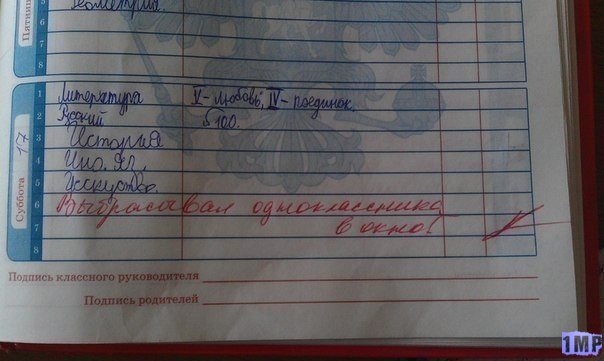 Пятниц
5
Геометрия
6
7
8
Суббота 17
1 Литература V-любовь, IV-поединок.
2 Русский §100.
3 История
4 Ино. яз.
5 Исскуство.
6 Выбрасывал одноклассника
7 в окно!
8
Подпись классного руководителя
Подпись родителей
1MP